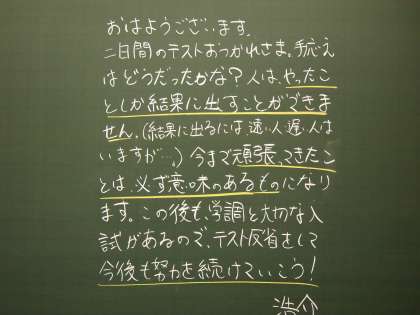 おはようございます。
二日間のテストおつかれさま。手応え
はどうだったかな？人は、やったこ
としか結果に出すことができま
せん。（結果に出るには、速い人遅い人は
いますが…。）今まで頑張ってきたこ
とは、必ず意味のあるものになり
ます。この後も、学調と大切な入
試があるので、テスト反省をして
今後も努力を続けていこう！
浩介